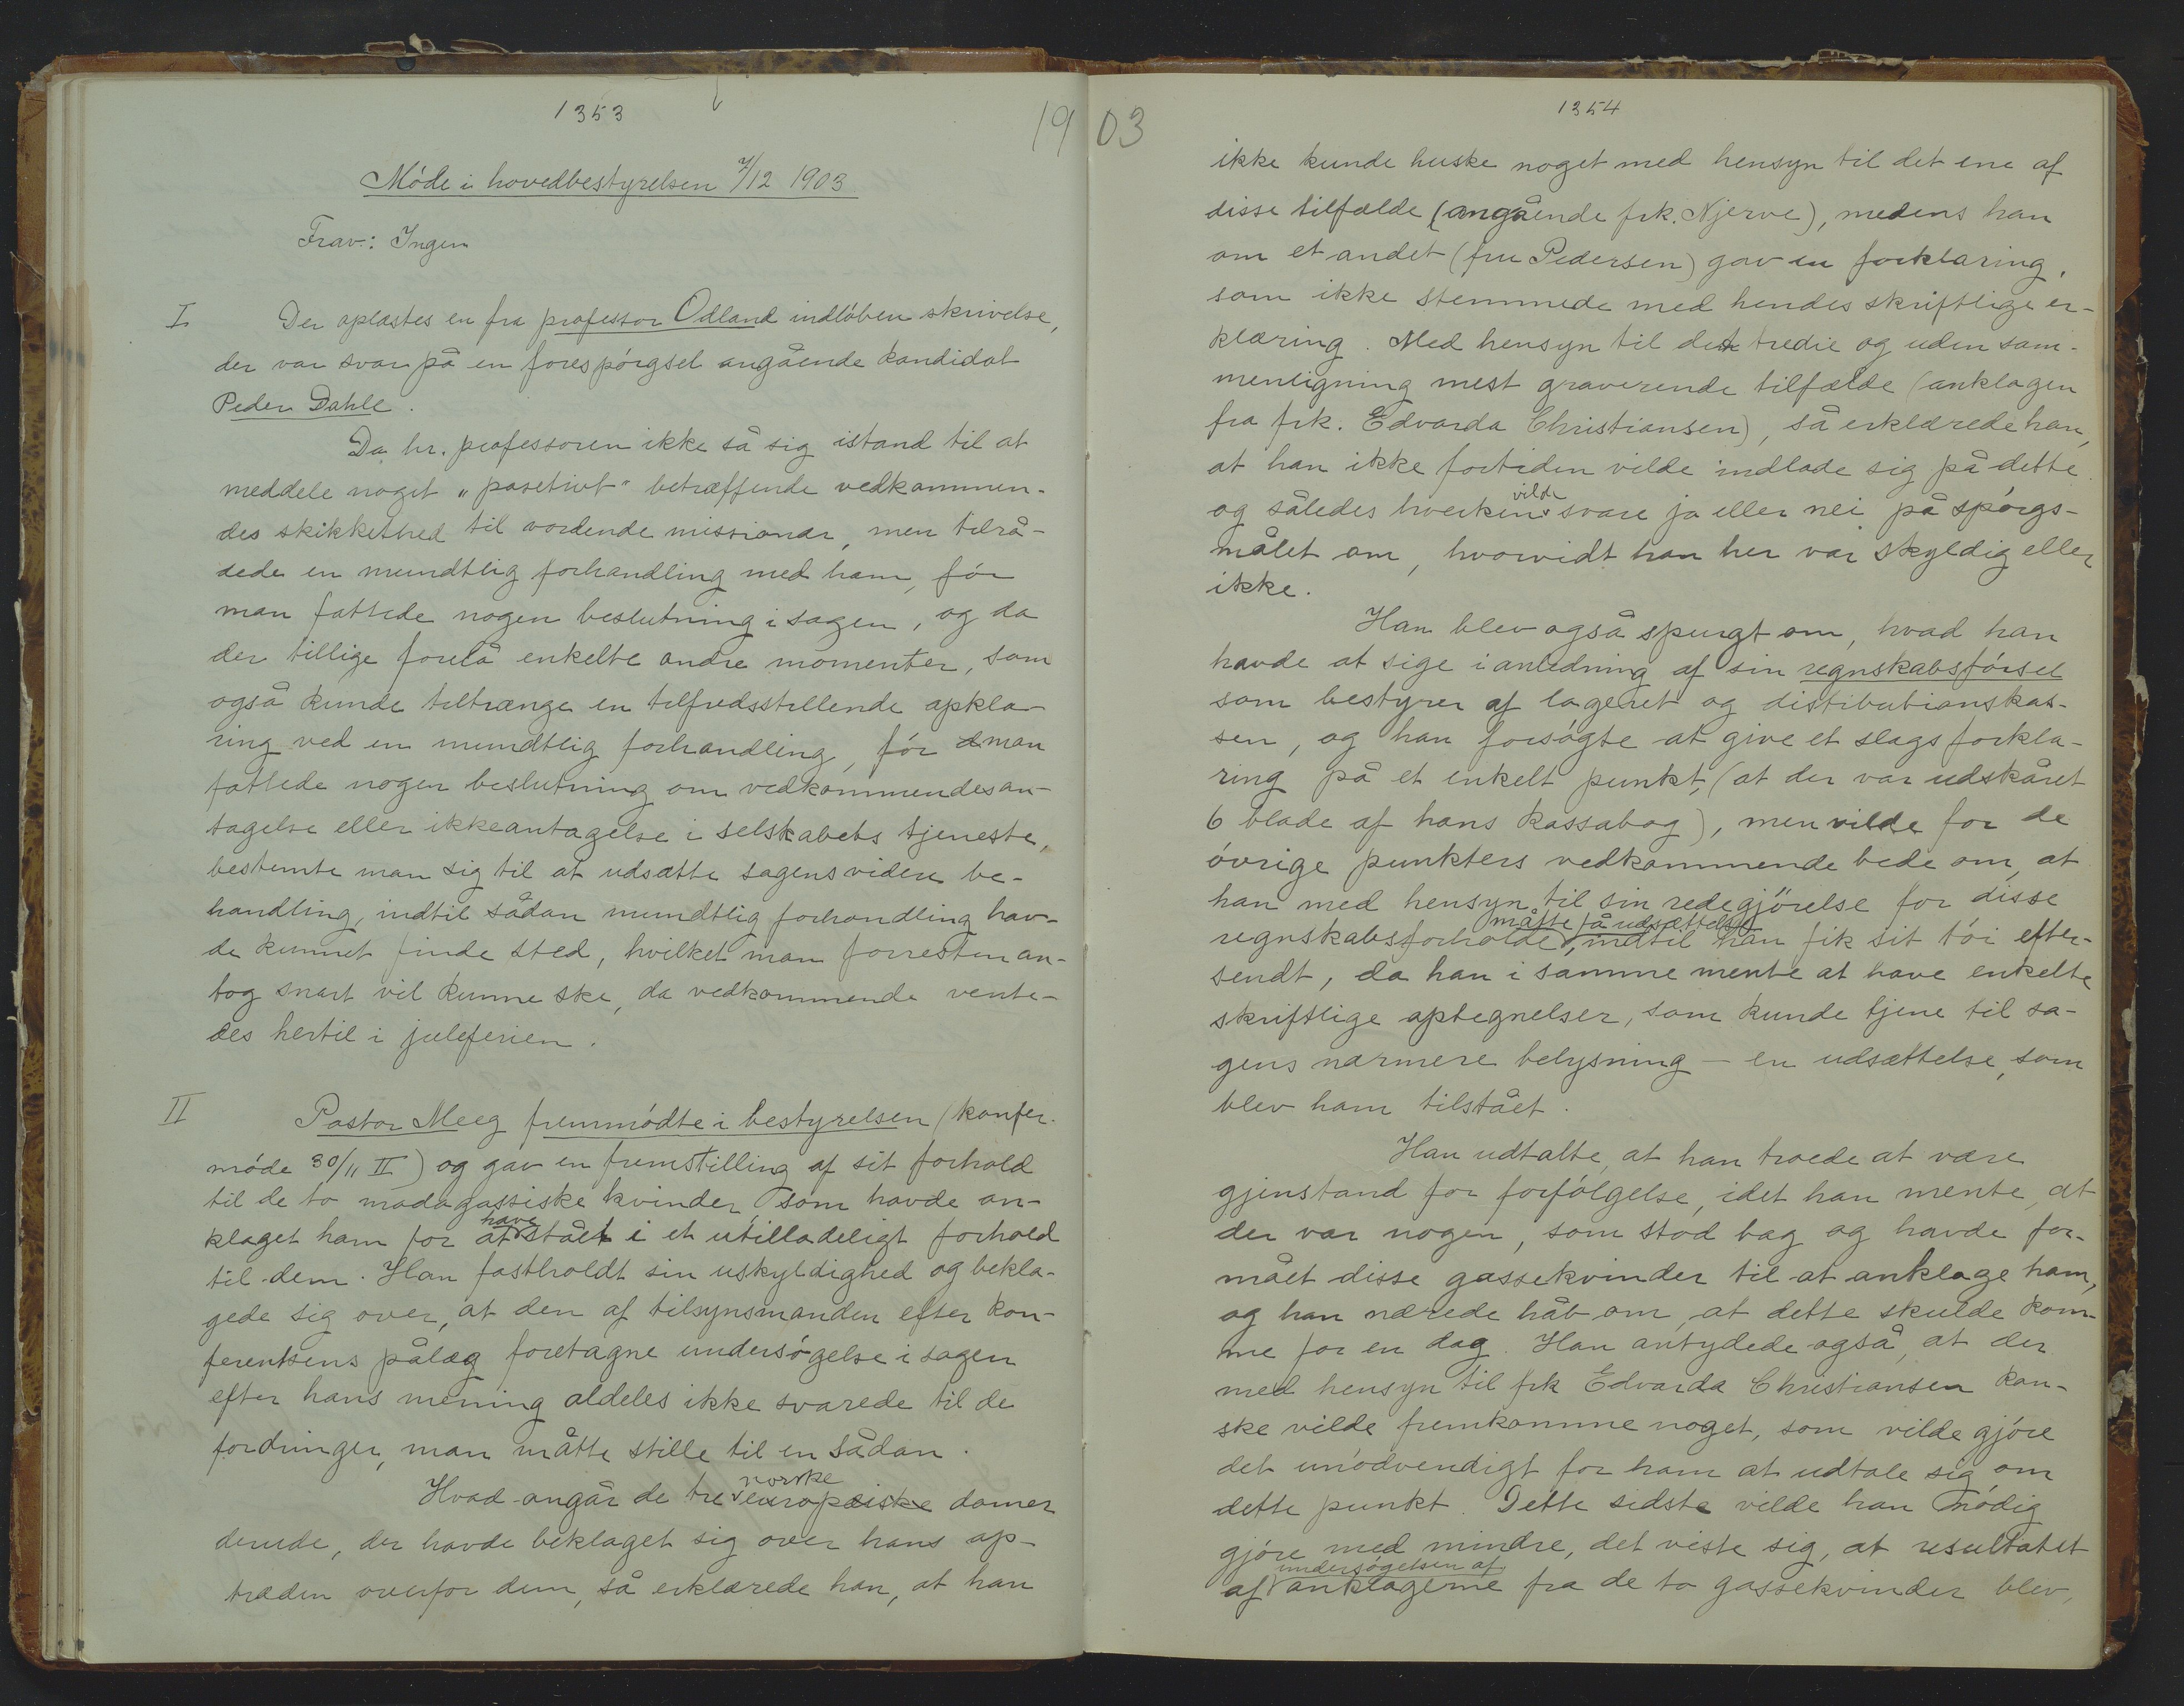 1353
1903
Møde i hovedbestyrelsen 7/12 1903
Frav.: Ingen
I Der oplæstes en fra professor Odland indløben skrivelse,
der var svar på en forespørgsel angående kandidat
Peder Dahle.
Da hr. professoren ikke så sig istand til at
meddele noget "posetivt" betræffende vedkommen-
des skikkethed til vordende missionær, men tilrå-
dede en mundtlig forhandling med ham, før
man fattede nogen beslutning i sagen, og da
der tillige forelå enkelte andre momenter, som
også kunde tiltrænge en tilfredsstillende opkla-
ring ved en mundtlig forhandling, før man
fattede nogen beslutning om vedkommendes an-
tagelse eller ikkeantagelse i selskabets tjeneste,
bestemte man sig til at udsætte sagens videre be-
handling, indtil sådan mundtlig forhandling hav-
de kunnet finde sted, hvilket man forresten an-
tog snart vil kunne ske, da vedkommende vente-
des hertil i juleferien.
II Pastor Meeg fremmødte i bestyrelsen (konfer.
møde 30/11 II) og gav en fremstilling af sit forhold
til de to madagassiske kvinder, som havde an-
klaget ham for at have stået i et utilladeligt forhold
til dem. Han fastholdt sin uskyldighed og bekla-
gede sig over, at den af tilsynsmanden efter kon-
ferentsens pålæg foretagne undersøgelse i sagen
efter hans mening aldeles ikke svarede til de
fordringer, man måtte stille til en sådan.
Hvad angår de tre norske europæiske damer
derude, der havde beklaget sig over hans op-
træden overfor dem, så erklærede han, at han
1354
ikke kunde huske noget med hensyn til det ene af
disse tilfælde (angående frk. Njerve), medens han
om et andet (fru Pedersen) gav en forklaring,
som ikke stemmede med hendes skriftlige er-
klæring. Med hensyn til det tredie og uden sam-
menligning mest graverende tilfælde (anklagen
fra frk. Edvarda Christiansen), så erklærede han,
at han ikke fortiden vilde indlade sig på dette
og således hverken vilde svare ja eller nei på spørgs-
målet om, hvorvidt han her var skyldig eller
ikke.
Han blev også spurgt om, hvad han
havde at sige i anledning af sin regnskabsførsel
som bestyrer af lageret og distibutionskas-
sen, og han forsøgte at give et slags forkla-
ring på et enkelt punkt, (at der var udskåret
6 blade af hans kassabog), men vilde for de
øvrige punkters vedkommende bede om, at
han med hensyn til sin redegjörelse for disse
regnskabsforholde måtte få udsættelse, indtil han fik sit tøi efter-
sendt, da han i samme mente at have enkelte
skriftlige optegnelser, som kunde tjene til sa-
gens nærmere belysning — en udsættelse, som
blev ham tilstået.
Han udtalte, at han troede at være
gjenstand for forfølgelse, idet han mente, at
der var nogen, som stod bag og havde for-
mået disse gassekvinder til at anklage ham,
og han nærede håb om, at dette skulde kom-
me for en dag. Han antydede også, at der
med hensyn til frk Edvarda Christiansen kan-
ske vilde fremkomme noget, som vilde gjøre
det unødvendigt for ham at udtale sig om
dette punkt. Dette sidste vilde han nødig
gjøre med mindre, det viste sig, at resultatet
af undersøgelsen af anklagerne fra de to gassekvinder blev,